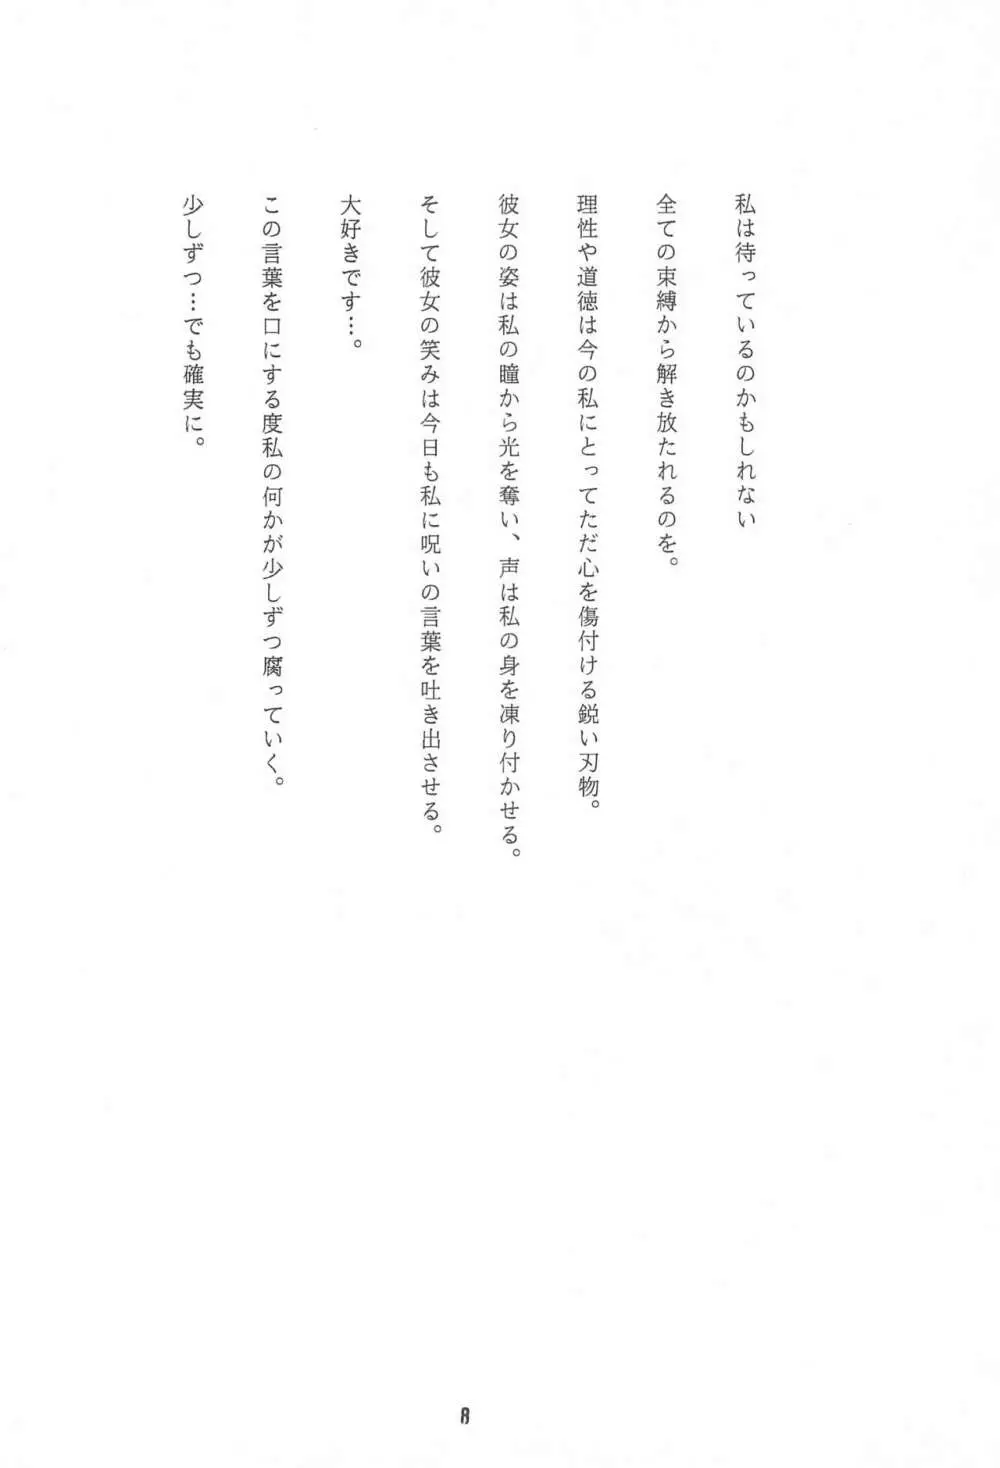 私は待っているのかもしれない
全ての束縛から解き放たれるのを。
理性や道徳は今の私にとってただ心を傷付ける鋭い刃物。
彼女の姿は私の瞳から光を奪い、声は私の身を凍り付かせる。
そして彼女の笑みは今日も私に呪いの言葉を吐き出させる。
大好きです…。
この言葉を口にする度私の何かが少しずつ腐っていく。
少しずつ…でも確実に。
8